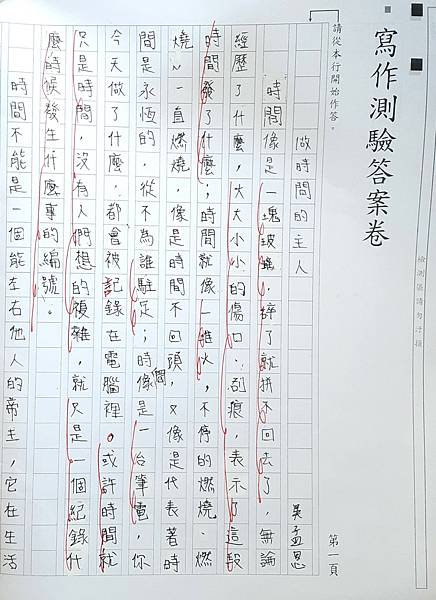 寫作測驗答案卷
第一頁
請從本行開始作答。
做時間的主人
吳孟恩
時間像是一塊玻璃，碎了就拼不回去了，無論
經歷了什麼，大大小小的傷口、刮痕，表示了這段
時間發了什麼；時間就像一堆火，不停的燃燒、燃
燒～一直燃燒，像是時間不回頭，又像是代表著時
間是永恆的，從不為誰駐足；時間像是一台筆電，你
今天做了什麼，都會被記錄在電腦裡。或許時間就
只是時間，沒有人們想的複雜，就只是一個紀錄什
麼時候發生什麼事的編號。
時間不能是一個能左右他人的帝主，它在生活